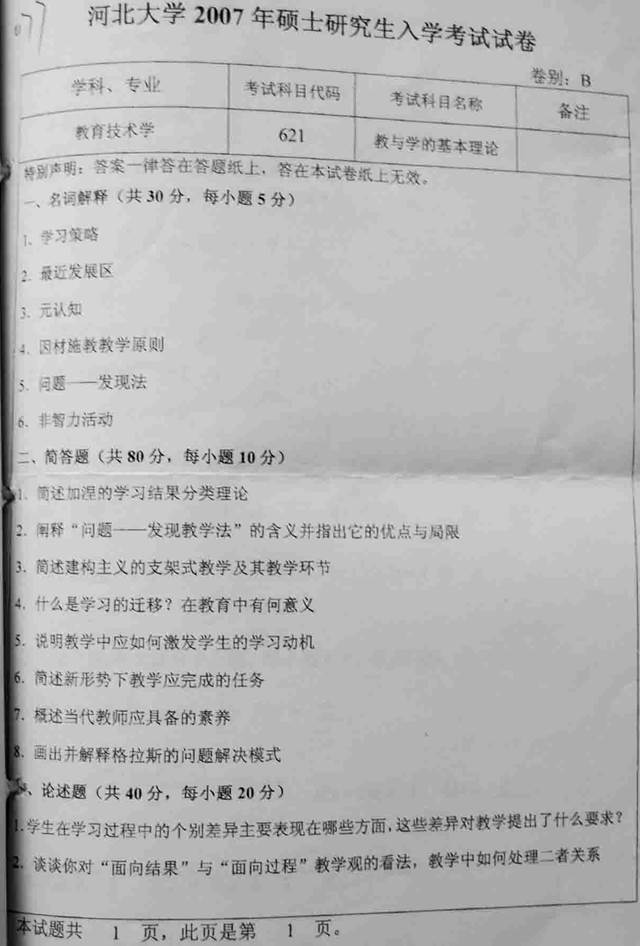 77
河北大学 2007 年硕士研究生入学考试试卷
卷别：B
学科、专业 考试科目代码 考试科目名称 备注
教育技术学 621 教与学的基本理论
特别声明：答案一律答在答题纸上，答在本试卷纸上无效。
一、名词解释（共 30 分，每小题 5 分）
1. 学习策略
2. 最近发展区
3. 元认知
4. 因材施教教学原则
5. 问题——发现法
6. 非智力活动
二、简答题（共 80 分，每小题 10 分）
1. 简述加涅的学习结果分类理论
2. 阐释“问题——发现教学法”的含义并指出它的优点与局限
3. 简述建构主义的支架式教学及其教学环节
4. 什么是学习的迁移？在教育中有何意义
5. 说明教学中应如何激发学生的学习动机
6. 简述新形势下教学应完成的任务
7. 概述当代教师应具备的素养
8. 画出并解释格拉斯的问题解决模式
、论述题（共 40 分，每小题 20 分）
1. 学生在学习过程中的个别差异主要表现在哪些方面，这些差异对教学提出了什么要求？
2. 谈谈你对“面向结果”与“面向过程”教学观的看法，教学中如何处理二者关系
本试题共 1 页，此页是第 1 页。